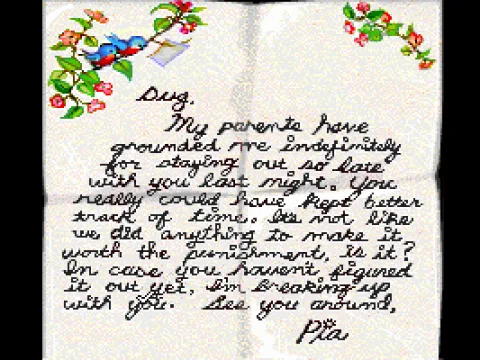 Dug,
My parents have
grounded me indefinitely
for staying out so late
with you last night. You
really could have kept better
track of time. Its not like
we did anything to make it
worth the punishment, is it?
In case you havent figured
it out yet, Im breaking up
with you. See you around,
Pia